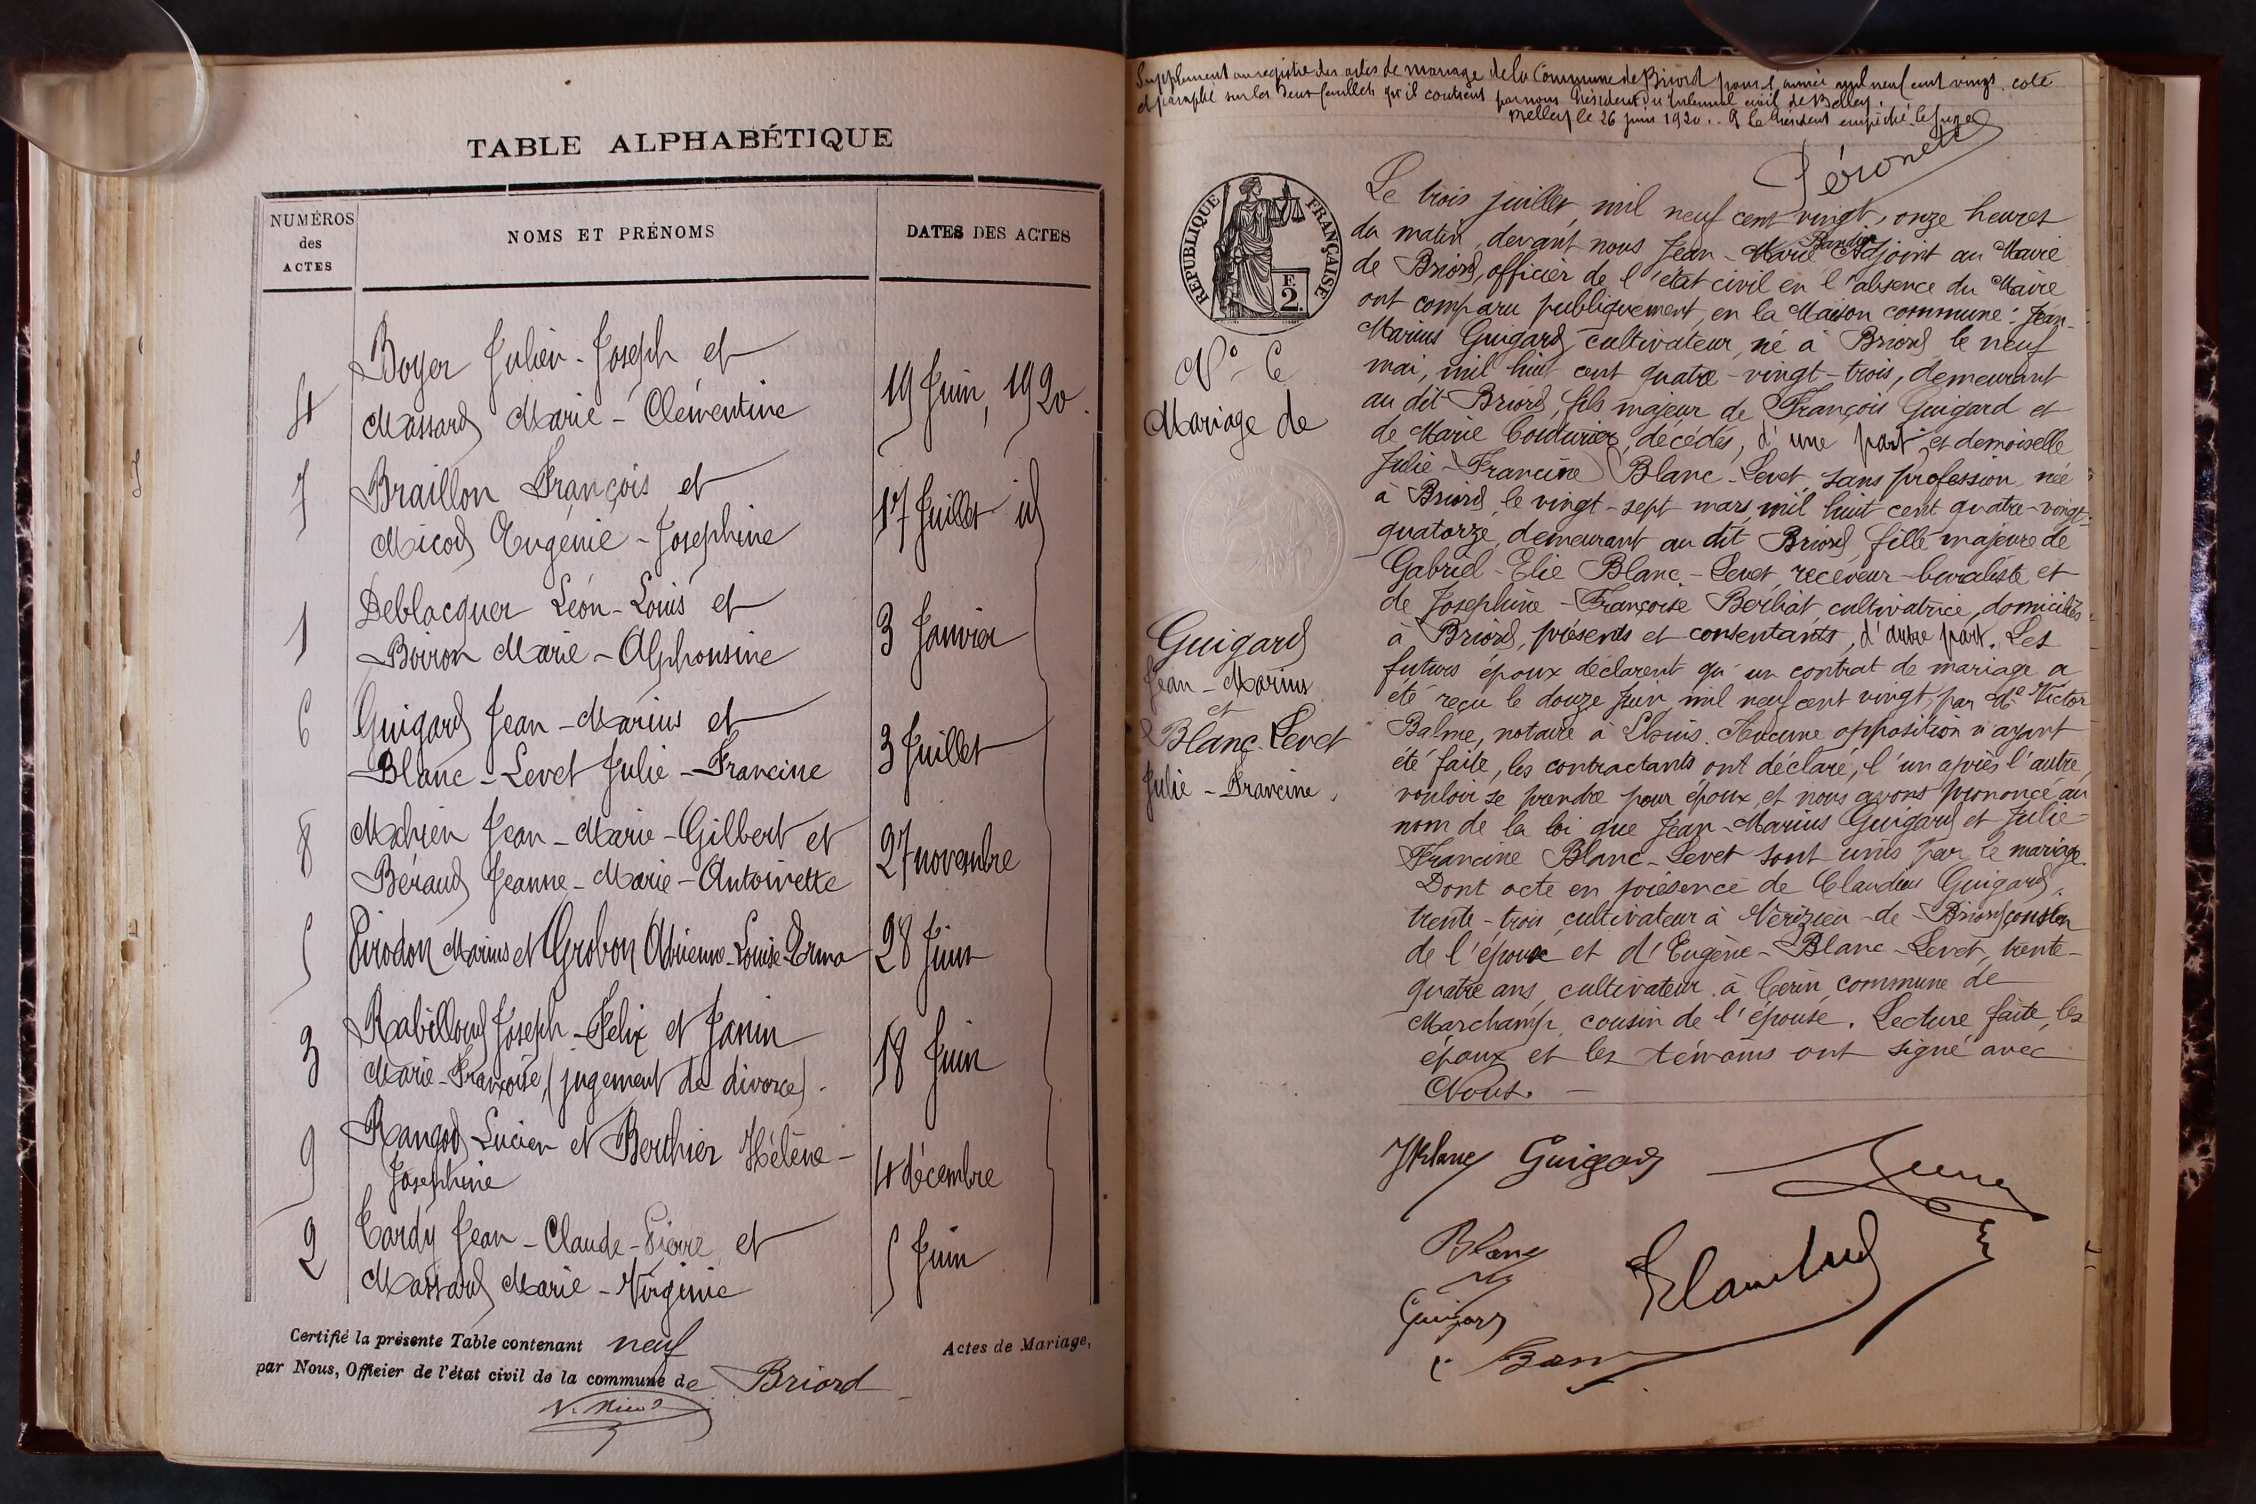 TABLE ALPHABÉTIQUE
NUMÉROS des ACTES
NOMS ET PRÉNOMS
DATES DES ACTES
4 Boyer Julien-Joseph et
Massard Marie-Clémentine 19 Juin, 1920.
7 Braillon François et
Micod Eugénie-Josephine 17 Juillet id
1 Deblacquer Léon-Louis et
Boiron Marie-Alphonsine 3 Janvier
6 Guigard Jean-Marius et
Blanc-Levet Julie-Francine 3 Juillet
8 Mahien Jean-Marie-Gilbert et
Béraud Jeanne-Marie-Antoinette 27 novembre
5 Pirodon Marius et Grobon Adrienne-Louise-Erma 28 Juin
3 Rabilloud Joseph-Félix et Janin
Marie-Françoise, (jugement de divorce). 18 Juin
9 Rangod Lucien et Berthier Hélène-
Josephine 4 décembre
2 Tardy Jean-Claude-Pierre et
Massard Marie-Virginie 5 Juin
Certifié la présente Table contenant neuf Actes de Mariage,
par Nous, Officier de l'état civil de la commune de Briord
Supplément au registre des actes de mariage de la Commune de Briord pour l'année mil neuf cent vingt, coté
et paraphé sur les deux feuillets qu'il contient par nous Président du tribunal civil de Belley.
Belley le 26 juin 1920. P. le Président empêché le juge
Péronet
RÉPUBLIQUE FRANÇAISE
F. 2
N° 6
Mariage de
Guigard
Jean-Marius
et
Blanc-Levet
Julie-Francine.
Le trois juillet, mil neuf cent vingt, onze heures
du matin, devant nous Jean-Marie Bandin Adjoint au Maire
de Briord, officier de l'état civil en l'absence du Maire
ont comparu publiquement, en la Maison commune: Jean-
Marius Guigard, cultivateur, né à Briord, le neuf
mai, mil huit cent quatre-vingt-trois, demeurant
au dit Briord, fils majeur de François Guigard et
de Marie Couturier, décédés, d'une part, et demoiselle
Julie-Francine Blanc-Levet, sans profession, née
à Briord, le vingt-sept mars, mil huit cent quatre-vingt-
quatorze, demeurant au dit Briord, fille majeure de
Gabriel-Elie Blanc-Levet, receveur-buraliste et
de Josephine-Françoise Berliat cultivatrice, domiciliés
à Briord, présents et consentants, d'autre part. Les
futurs époux déclarent qu'un contrat de mariage a
été reçu le douze Juin, mil neuf cent vingt, par Me Victor
Balme, notaire à Lhuis. Aucune opposition n'ayant
été faite, les contractants ont déclaré, l'un après l'autre,
vouloir se prendre pour époux, et nous avons prononcé au
nom de la loi que Jean-Marius Guigard et Julie-
Francine Blanc-Levet sont unis par le mariage.
Dont acte en présence de Claudius Guigard,
trente-trois, cultivateur à Vérizieu-de-Briord, cousin
de l'époux et d'Eugène-Blanc-Levet, trente-
quatre ans, cultivateur à Cerin, commune de
Marchamp, cousin de l'épouse. Lecture faite, les
époux et les témoins ont signé avec
Nous.
JBlanc Guigard
Blanc
Guigard